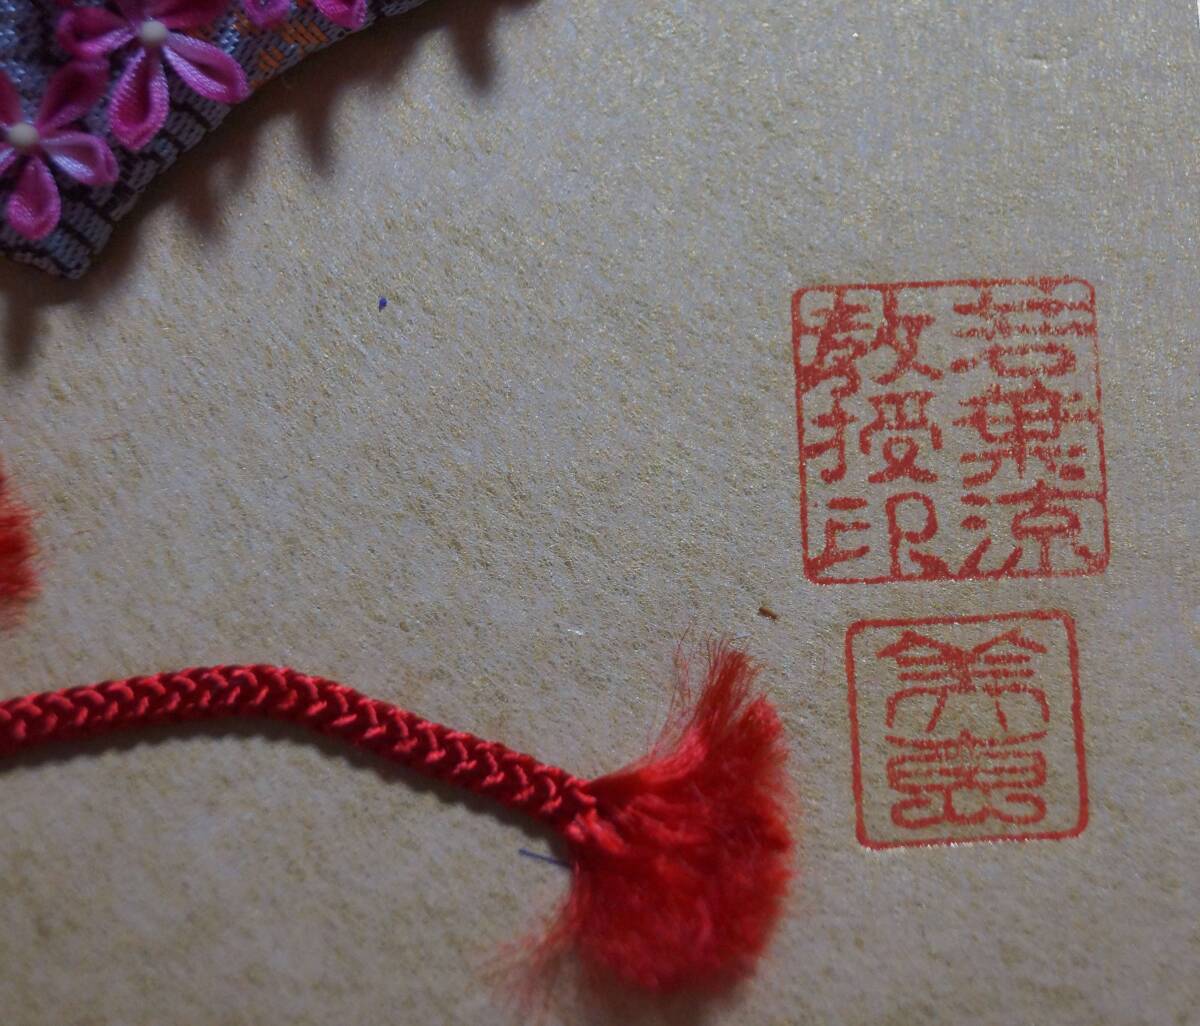 若葉流
教授印